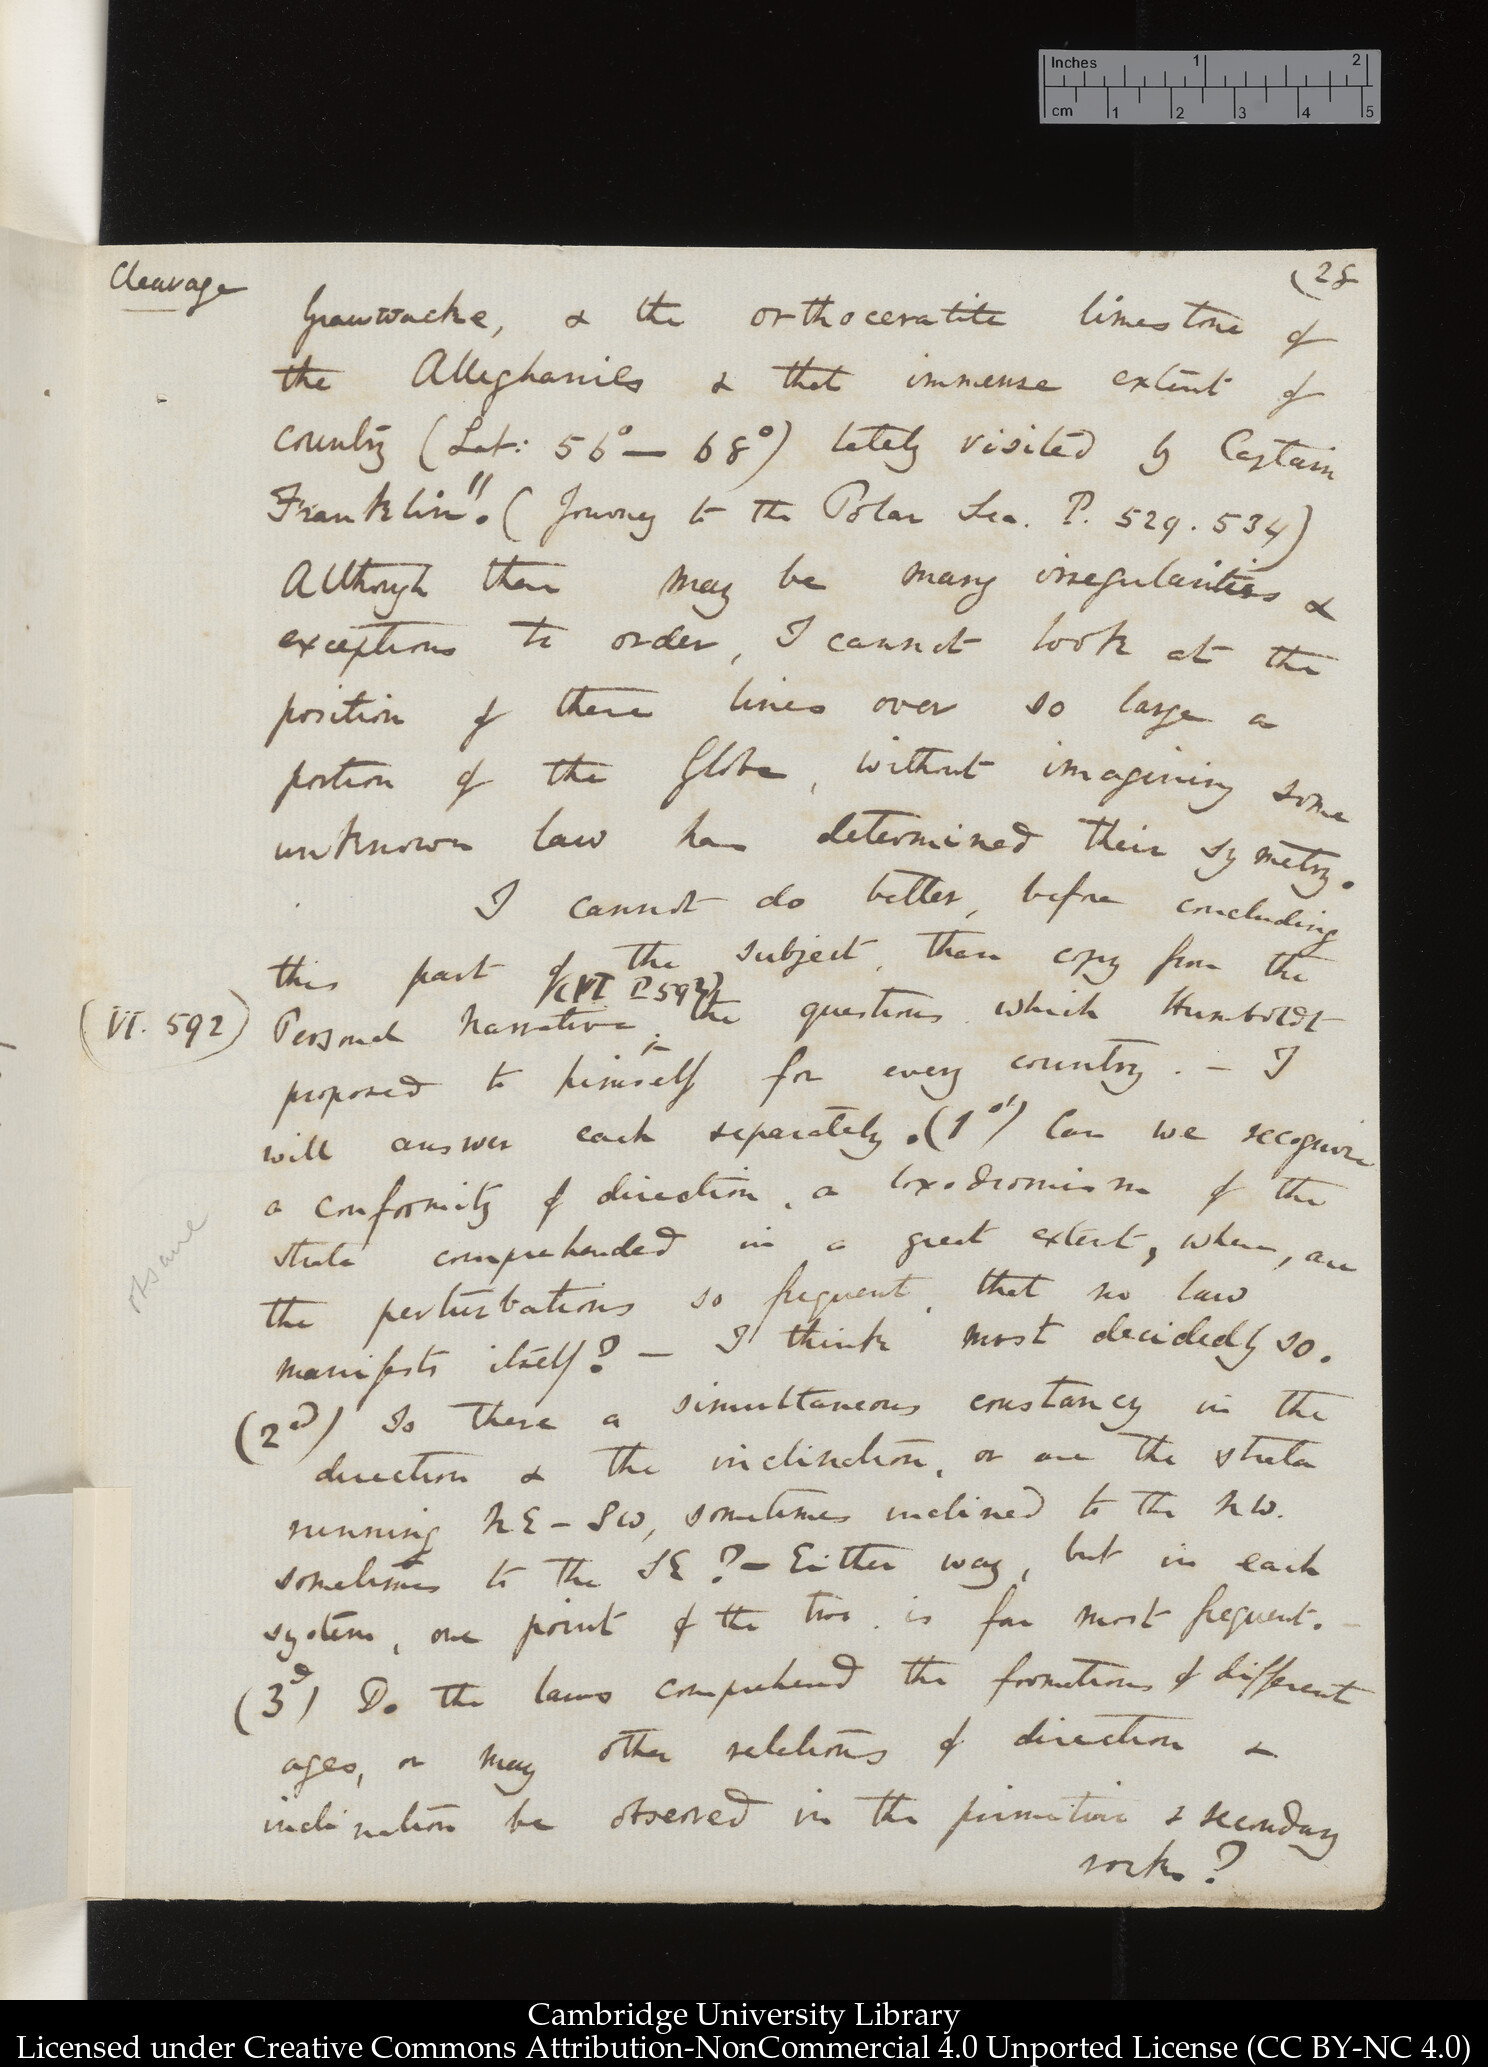 Inches 1 2
cm 1 2 3 4 5
Cleavage
(28
Grauwacke, & the orthoceratite limestone of
the Alleghanies & that immense extent of
country (Lat: 56° — 68°) lately visited by Captain
Franklin". (Journey to the Polar Sea. P. 529. 534)
Although there may be many irregularities &
exceptions to order, I cannot look at the
position of these lines over so large a
portion of the Globe, without imagining some
unknown law has determined their symetry.
I cannot do better, before concluding
this part of the subject, than copy from the
(VI P 592)
(VI. 592)
Personal Narrative, the questions which Humboldt
proposed to himself for every country. — I
will answer each separately. (1st) Can we recognize
a conformity of direction, a loxodromism of the
strata comprehended in a great extent, where, are
the perturbations so frequent, that no law
manifests itself? — I think most decidedly so.
(2nd) Is there a simultaneous constancy in the
direction & the inclination, or are the strata
running NE — SW, sometimes inclined to the NW.
sometimes to the SE? — Either way, but in each
system, one point of the two is far most frequent. —
(3d) Do the laws comprehend the formations of different
ages, or may other relations of direction &
inclination be observed in the primitive & secondary
rocks?
Cambridge University Library
Licensed under Creative Commons Attribution-NonCommercial 4.0 Unported License (CC BY-NC 4.0)